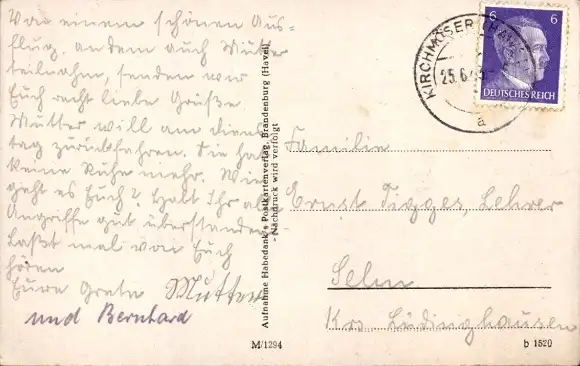 Von einem schönen Aus-
flug, an dem auch Mutter
teilnahm, senden wir
Euch recht liebe Grüße
Mutter will am Diens
tag zurückfahren. Sie hat
keine Ruhe mehr. Wie
geht es Euch? Habt Ihr alle
Angriffe gut überstanden.
Laßt mal von Euch
hören
Eure Grete Mutter
und Bernhard
Aufnahme Habedank's Postkartenverlag, Brandenburg (Havel)
- Nachdruck wird verfolgt -
M/1294
KIRCHMÖSER (HAVEL)
25.6.
a
6 6
DEUTSCHES REICH
Familie
Ernst Tigges, Lehrer
Selm
Krs. Lüdinghausen
b 1520